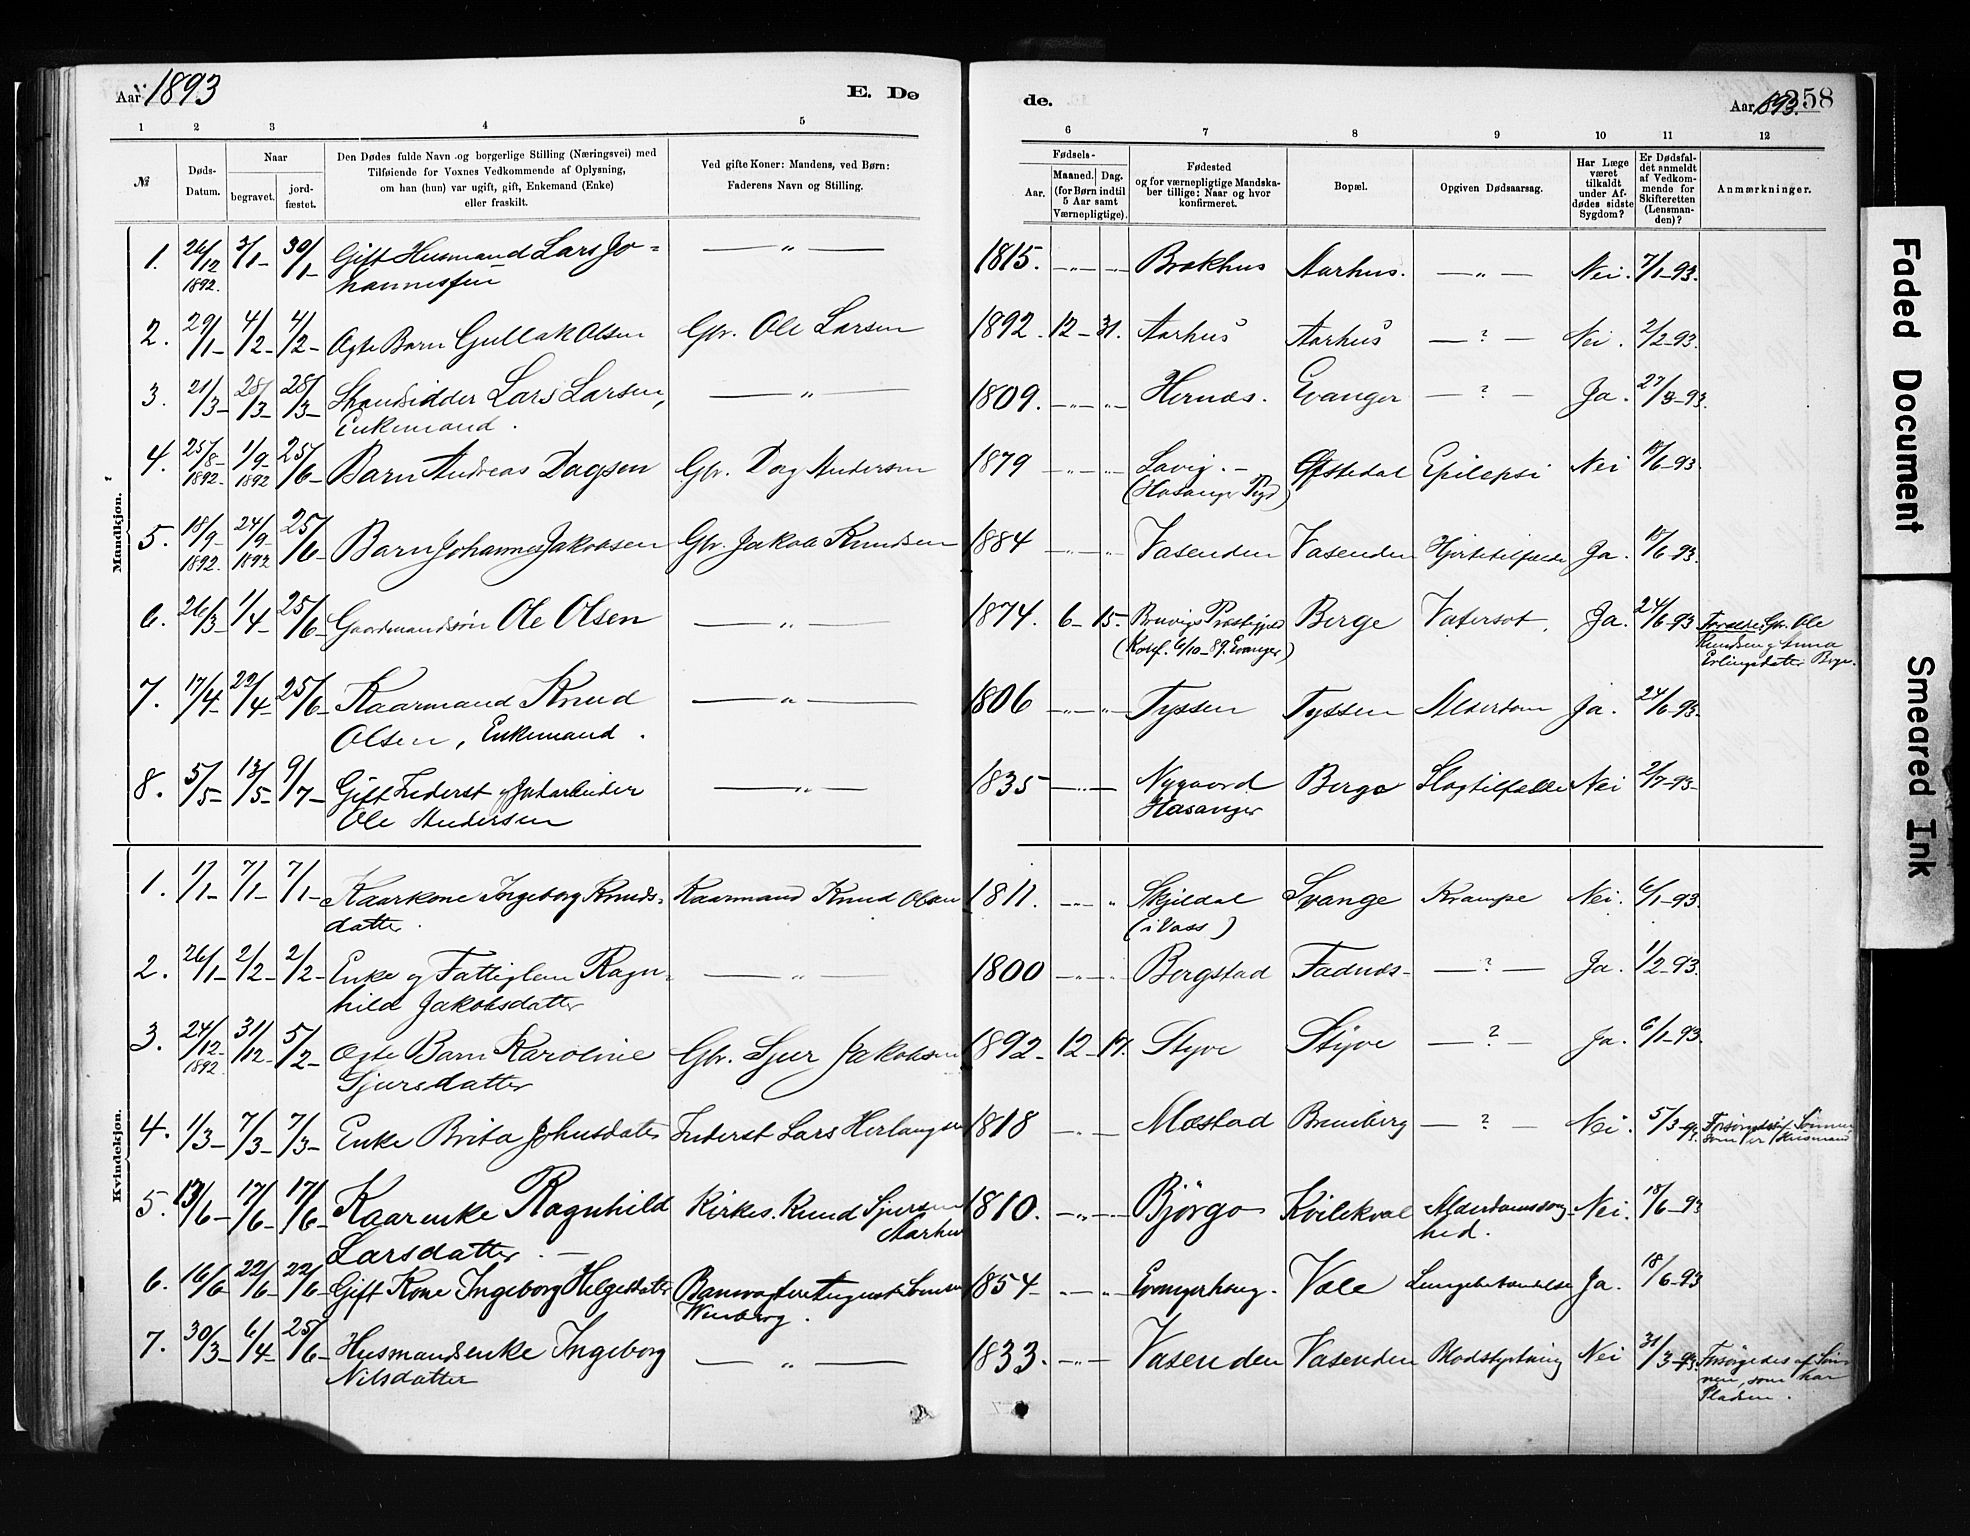 Aar 1893
E. Dø
de.
Aar 1893. 258
1 2 3 4 5 6 7 8 9 10 11 12
№
Døds-Datum.
Naar
begravet.
jord-fæstet.
Den Dødes fulde Navn og borgerlige Stilling (Næringsvei) med
Tilføiende for Voxnes Vedkommende af Oplysning,
om han (hun) var ugift, gift, Enkemand (Enke)
eller fraskilt.
Ved gifte Koner: Mandens, ved Børn:
Faderens Navn og Stilling.
Fødsels-
Aar. Maaned. Dag.
(for Børn indtil
5 Aar samt
Værnepligtige).
Fødested
og for værnepligtige Mandska-
ber tillige: Naar og hvor
konfirmeret.
Bopæl.
Opgiven Dødsaarsag.
Har Læge
været
tilkaldt
under Af-
dødes sidste
Sygdom?
Er Dødsfal-
det anmeldt
af Vedkom-
mende for
Skifteretten
(Lensman-
den)?
Anmærkninger.
Mandkjøn.
1. 3/1 30/1 Gift Husmand Lars Jo= — „ — 1815. Brækhus Aarhus. — „ — Nei. 7/1-93.
1892. hannesen
2. 29/1 4/2 4/2 Ægte Barn Gullak Olsen Gbr. Ole Larsen 1892. 12 31. Aarhus Aarhus — ? — Nei. 2/2-93.
3. 21/3 28/3 28/3 Lars Larsen, — „ — 1809. Hernæs. Evanger — ? — Ja. 27/3-93.
Enkemand.
4. 25/8 1/9 25/6 Barn Andreas Dagsen Gbr. Dag Andersen 1879 Lavig. Epilepsi Nei 10/6-93.
1892. 1892 (Hosanger Pgd)
5. 18/9 24/9 25/6 Barn Johannes Jakobsen Gbr. Jakob Knudsen 1884 Vasenden Vasenden Hjertetilfælde Ja. 10/6-93.
1892. 1892
6. 26/3 1/4 25/6 Gaardmandssøn Ole Olsen — „ — 1874. 6 15. Bruvigs Præstegjeld Berge Vatersot. Ja. 24/6-93 Forældre: Gbr. Ole
(Konf. 6/10-89. Evanger) Knudsen og Anna
Erlingsdatter Berge.
7. 17/4 22/4 25/6 Kaarmand Knud — „ — 1806 Tyssen Tyssen Alderdom Ja. 24/6-93.
Olsen, Enkemand.
8. 5/5 13/5 9/7 Gift Inderst og Jordarbeider — „ — 1835 Nygaard Berge Slagtilfælde Nei 2/7-93
Ole Andersen Hosanger
Kvindekjøn.
1. 1/1 7/1 7/1 Kaarkone Ingeborg Knuds- Kaarmand Knud Olsen 1811. Skjeldal Evange Krampe Nei. 6/1-93.
datter. (i Voss)
2. 26/1 2/2 2/2 Enke og Fattiglem Ragn- — „ — 1800 Bergstad Fadnæs — ? — Ja. 1/2-93.
hild Jakobsdatter
3. 24/12 31/12 5/2 Ægte Barn Karoline Gbr. Sjur Jakobsen 1892 12 17. Styve Styve — ? — Ja. 6/1-93.
1892 Sjursdatter
4. 1/3 7/3 7/3 Enke Brita Johnsdatter Inderst Lars 1818 Mæstad — ? — Nei. 5/3-93. Forsørgedes af Sønnen
som er Husmand
5. 13/6 17/6 17/6 Kaarenke Ragnhild Kirkes. Knud Sjursen 1810. Bjørgo Kvilekval Alderdomssvag- Nei. 18/6-93
Larsdatter. Aarhus hed.
6. 16/6 22/6 22/6 Gift Kone Ingeborg Helgesdatter Banevogter August 1854 Evangerhaug. Væle Lungebetændelse Ja. 18/6-93
Winberg.
7. 30/3 6/4 25/6 Husmandsenke Ingeborg — „ — 1833. Vasenden Vasenden Blodstyrtning Nei 31/3-93. Forsørgedes af Søn-
Nilsdatter nen, som har
Pladsen.
Faded Document
Smeared Ink